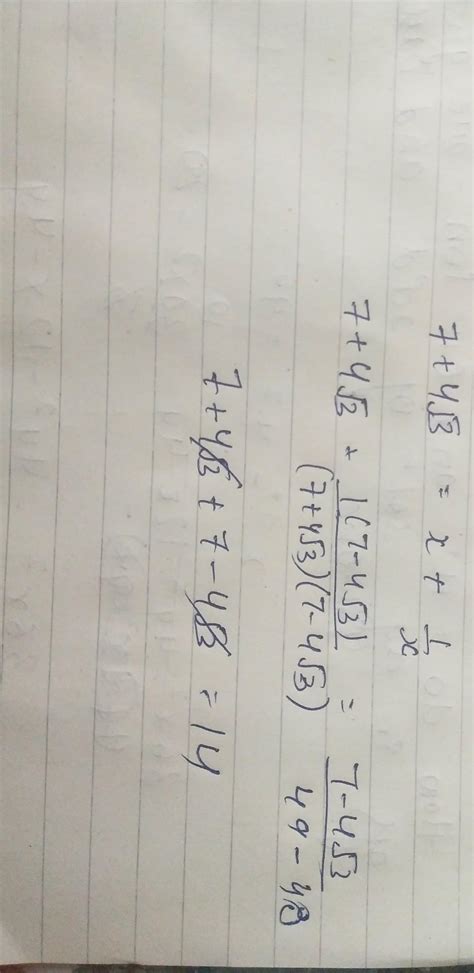 7+4√3 = x + 1/x
7+4√3 + 1(7-4√3)/(7+4√3)(7-4√3) = 7-4√3/49-48
7+4√3 + 7-4√3 = 14